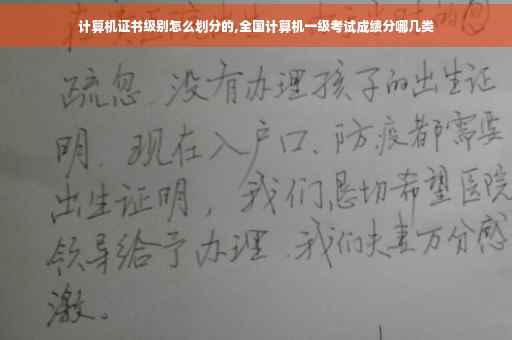 计算机证书级别怎么划分的,全国计算机一级考试成绩分哪几类
疏忽.没有办理孩子的出生证
明.现在入户口、防疫都需要
出生证明，我们恳切希望医院
领导给予办理.我们夫妻万分感
激。